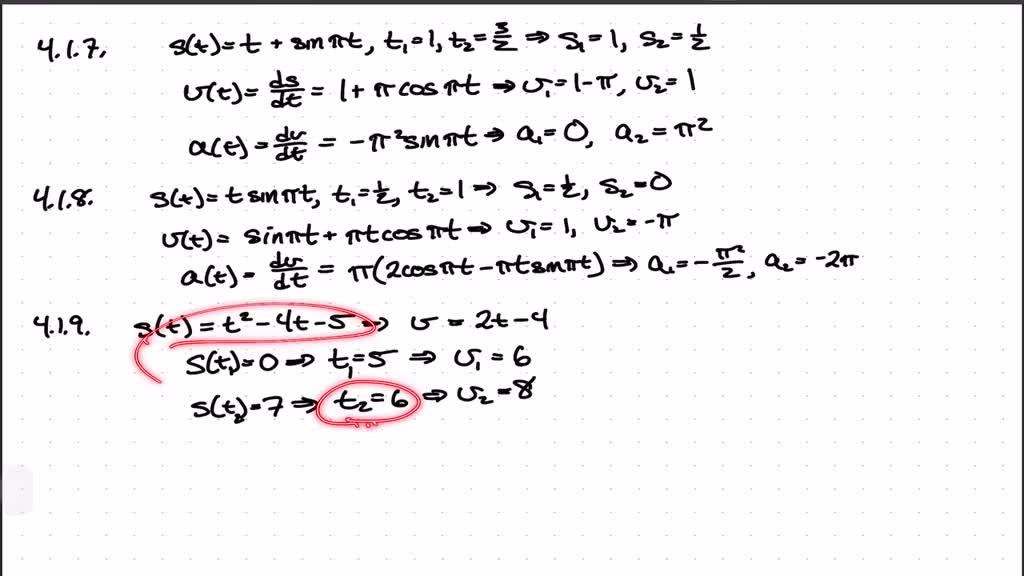 4.1.7. s(t) = t + sin πt, t₁=1, t₂=3/2 ⇒ s₁=1, s₂=1/2
v(t) = ds/dt = 1 + π cos πt ⇒ v₁=1-π, v₂=1
a(t) = dv/dt = -π² sin πt ⇒ a₁=0, a₂=π²
4.1.8. s(t) = t sin πt, t₁=1/2, t₂=1 ⇒ s₁=1/2, s₂=0
v(t) = sin πt + πt cos πt ⇒ v₁=1, v₂=-π
a(t) = dv/dt = π(2cos πt - πt sin πt) ⇒ a₁=-π²/2, a₂=-2π
4.1.9. s(t) = t² - 4t - 5 ⇒ v = 2t - 4
s(t₁)=0 ⇒ t₁=5 ⇒ v₁=6
s(t₂)=7 ⇒ t₂=6 ⇒ v₂=8